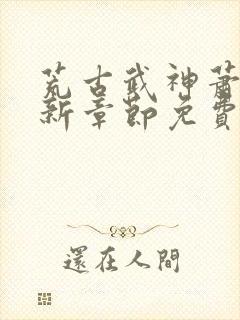 荒古武神蕭
新章節免費
還在人間